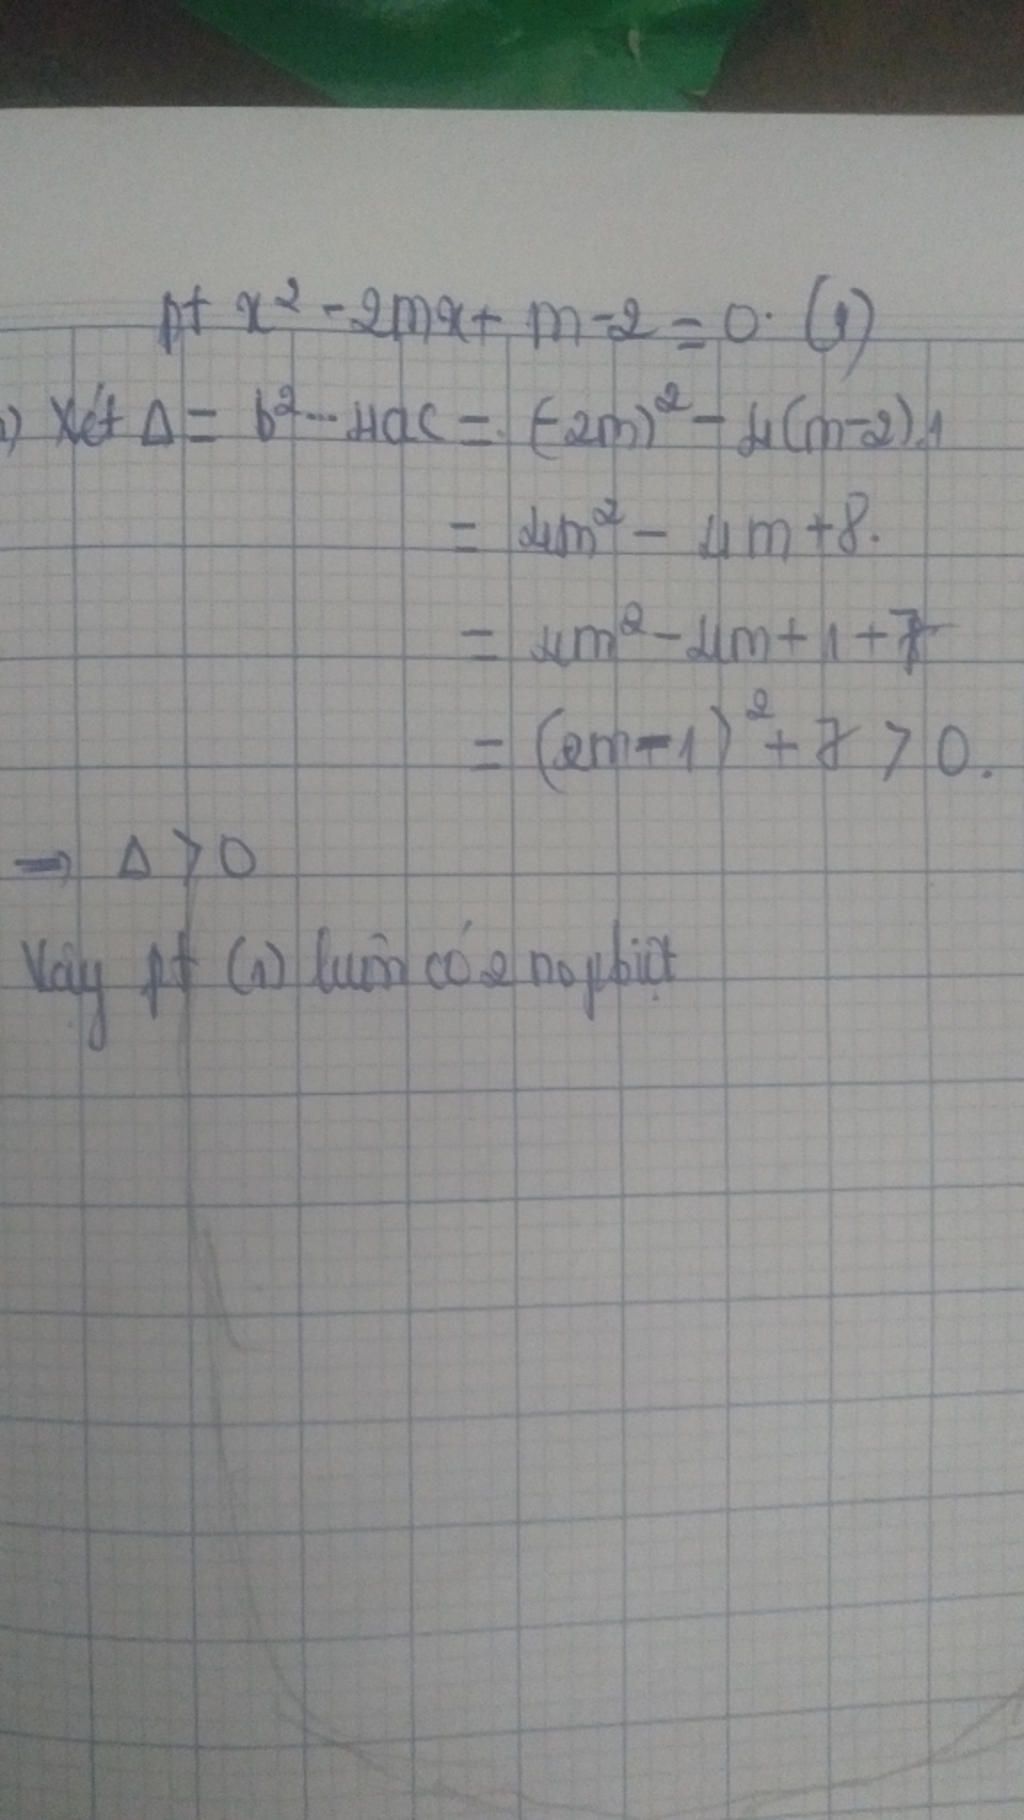 pt x² - 2mx + m - 2 = 0. (1)
) Xét Δ = b² - 4ac = (-2m)² - 4(m-2).1
= 4m² - 4m + 8.
= 4m² - 4m + 1 + 7
= (2m - 1)² + 7 > 0.
→ Δ > 0
Vậy pt (1) luôn có 2 no pbiệt